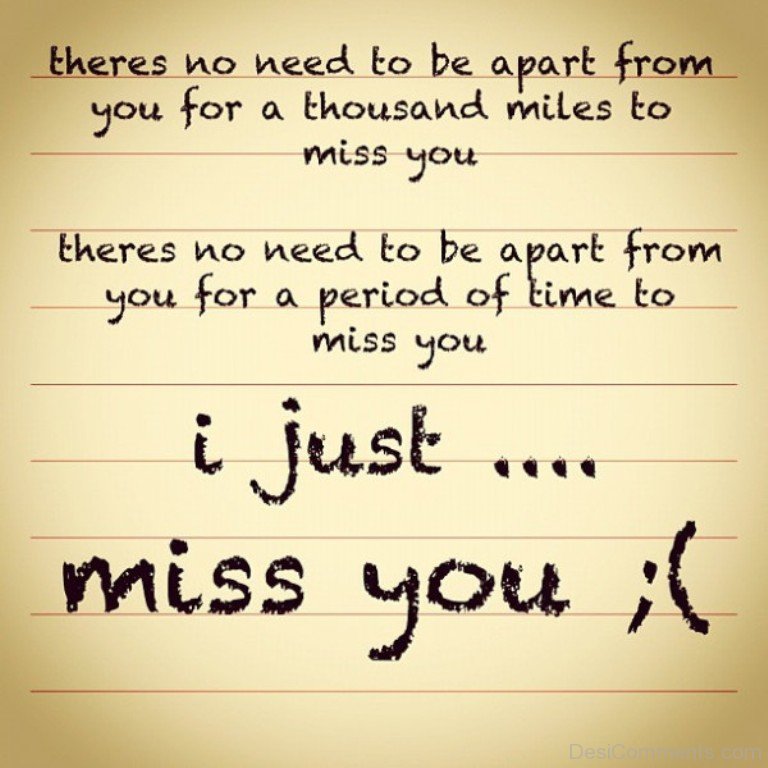 theres no need to be apart from
you for a thousand miles to
miss you
theres no need to be apart from
you for a period of time to
miss you
i just ....
miss you ;(
DesiComments.com